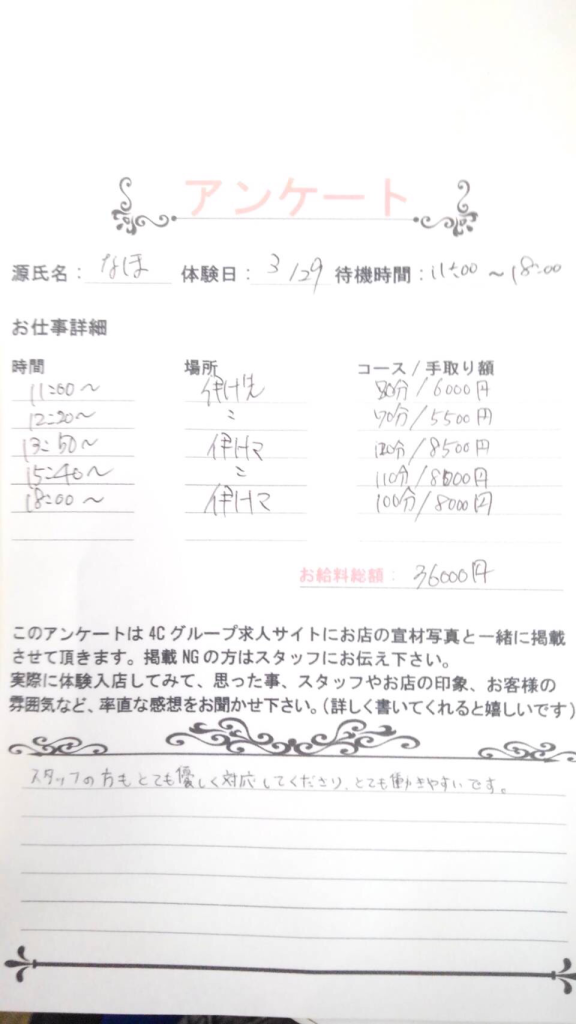 アンケート
源氏名: なほ 体験日: 3/29 待機時間: 11:00 ～18:00
お仕事詳細
時間 場所 コース / 手取り額
11:00～ 80分/6000円
12:20～ 〃 70分/5500円
13:50～ 120分/8500円
15:40～ 〃 110分/8000円
18:00～ 100分/8000円
お給料総額: 36000円
このアンケートは 4C グループ求人サイトにお店の宣材写真と一緒に掲載
させて頂きます。掲載 NG の方はスタッフにお伝え下さい。
実際に体験入店してみて、思った事、スタッフやお店の印象、お客様の
雰囲気など、率直な感想をお聞かせ下さい。(詳しく書いてくれると嬉しいです)
スタッフの方もとても優しく対応してくださり、とても働きやすいです。